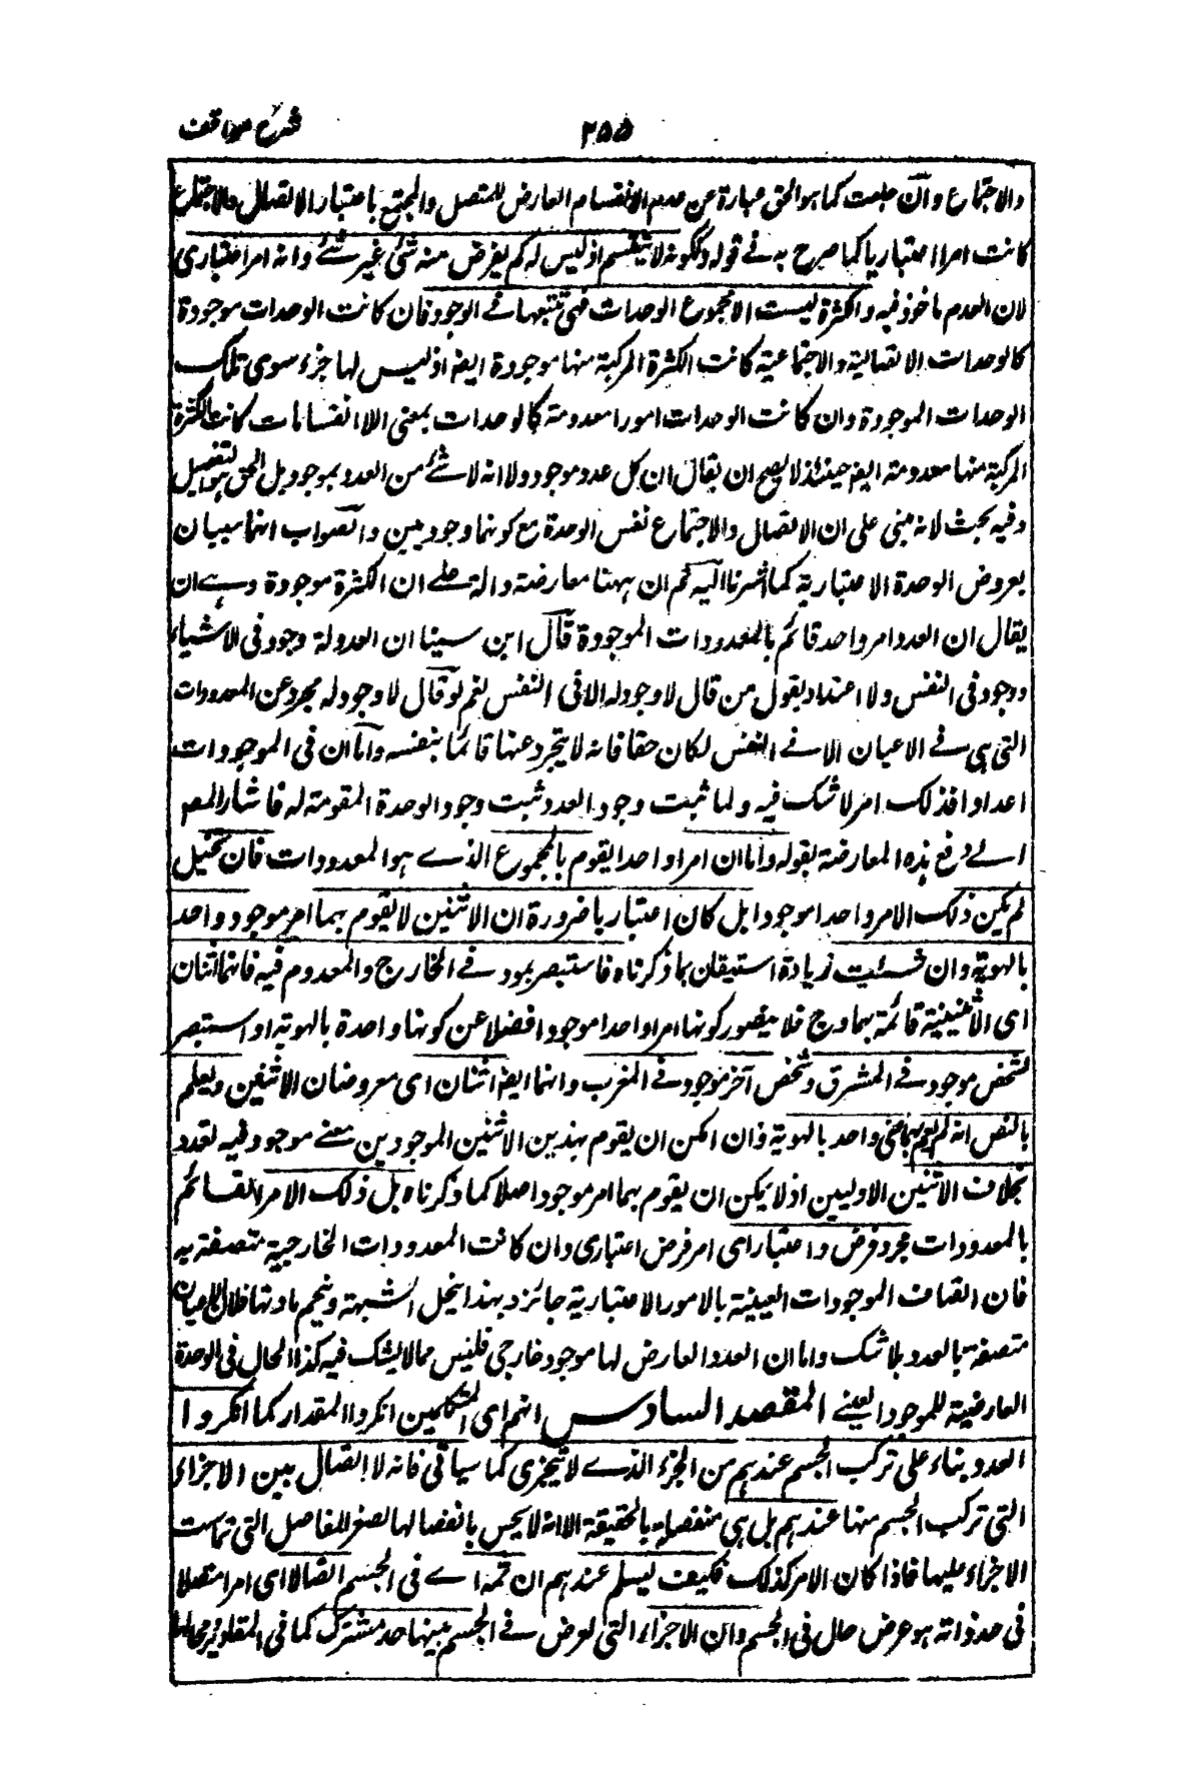 ٢٥٥ شرح مواقف
والاجتماع وان جعلت كما هو الحق عبارة عن عدم الانقسام العارض للمتصل والمجتمع باعتبار الاتصال والاجتماع
كانت امرا اعتباريا كما صرح به فى قوله وككونه لا ينقسم اذ ليس له كم يفرض منه شئ غير شئ وانه امر اعتبارى
لان العدم ماخوذ فيه والكثرة ليست الا مجموع الوحدات فهى تتبعها فى الوجود فان كانت الوحدات موجودة
كالوحدات الاتصالية والاجتماعية كانت الكثرة المركبة منها موجودة ايضا اذ ليس لها جزء سوى تلك
الوحدات الموجودة وان كانت الوحدات امورا معدومة كالوحدات بمعنى اللاانقسامات كانت الكثرة
المركبة منها معدومة ايضا حينئذ لا يصح ان يقال ان كل عدد موجود ولا انه لا شئ من العدد بموجود بل الحق هو التفصيل
وفيه بحث لانه مبنى على ان الاتصال والاجتماع نفس الوحدة مع كونهما وجوديين والصواب انهما سببان
بعروض الوحدة الاعتبارية كما اشرنا اليه ثم ان ههنا معارضة دالة على ان الكثرة موجودة وهى ان
يقال ان العدد امر واحد قائم بالمعدودات الموجودة قال ابن سينا ان العدد له وجود فى الاشياء
ووجود فى النفس ولا اعتداد بقول من قال لا وجود له الا فى النفس نعم لو قال لا وجود له مجرد عن المعدودات
التى هى فى الاعيان الا فى النفس لكان حقا فانه لا يتجرد عنها قائما بنفسه واما ان فى الموجودات
اعدادا فذلك امر لا شك فيه ولما ثبت وجود العدد ثبت وجود الوحدة المقومة له فاشار المص
الى دفع هذه المعارضة بقوله واما ان امرا واحدا يقوم بالمجموع الذى هو المعدودات فان تخيل
لم يكن ذلك الامر واحدا موجودا بل كان اعتباريا ضرورة ان الاثنين لا يقوم بهما امر موجود واحد
بالهوية وان شئت زيادة استيقان بما ذكرناه فاستبصر بموجود فى الخارج والمعدوم فيه فانهما اثنان
اى الاثنينية قائمة بهما وح فلا يتصور كونها امرا واحدا موجودا فضلا عن كونها واحدة بالهوية او استبصر
بشخص موجود فى المشرق وشخص آخر موجود فى المغرب وانهما ايضا اثنان اى معروضان الاثنين ويعلم
بالنص انه لم يقم بهما معنى واحد بالهوية وان امكن ان يقوم بهذين الاثنين الموجودين معنى موجود فيه تعدد
بخلاف الاثنين الاوليين اذ لا يمكن ان يقوم بهما امر موجود اصلا كما ذكرناه بل ذلك الامر القائم
بالمعدودات مجرد فرض واعتبار اى امر فرض اعتبارى وان كانت المعدودات الخارجية متصفة به
فان اتصاف الموجودات العينية بالامور الاعتبارية جائز وبهذا ينحل الشبهة وينحسم مادتها فان الاعيان
متصفة بالعدد بلا شك واما ان العدد العارض لها موجود خارجى فليس مما لا يشك فيه كذا الحال فى الوحدة
العارضية للموجود العينى المقصد السادس انهم اى المتكلمين انكروا المقدار كما انكروا
العدد بناء على تركب الجسم عندهم من الجزء الذى لا يتجزى كما سياتى فانه لا اتصال بين الاجزاء
التى تركب الجسم منها عندهم بل هى منفصلة بالحقيقة الا انه لا يحس بانفصالها لصغر المفاصل التى تماست
الاجزاء عليها فاذا كان الامر كذلك فكيف يسلم عندهم ان ثمه اى فى الجسم اتصالا اى امرا متصلا
فى حد ذاته هو عرض حال فى الجسم وان الاجزاء التى تعرض فى الجسم بينها حد مشترك كما فى المقادير